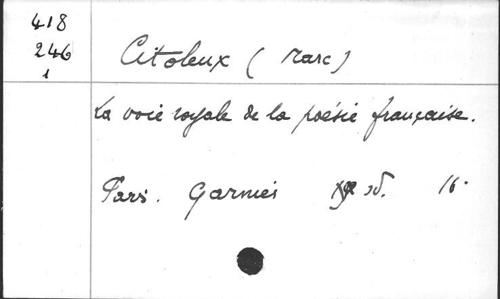 418
246
1
Citoleux (Marc)
La voie royale de la poésie française.
Paris. Garnier sd. 16°